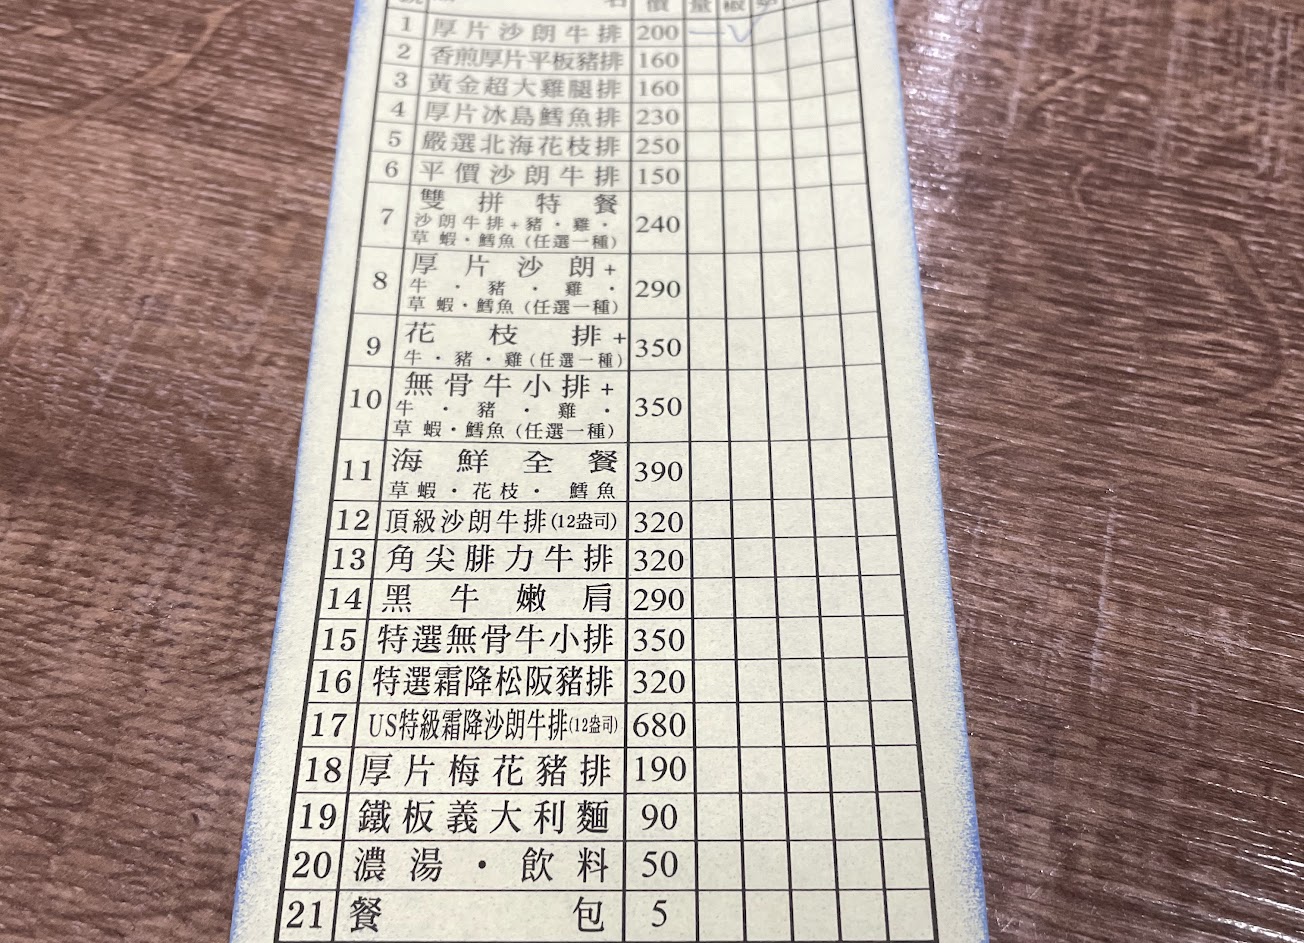 名 價 量 椒
1 厚片沙朗牛排 200 一 ✓
2 香煎厚片平板豬排 160
3 黃金超大雞腿排 160
4 厚片冰島鱈魚排 230
5 嚴選北海花枝排 250
6 平價沙朗牛排 150
7 雙拼特餐 240
沙朗牛排+豬·雞·
草蝦·鱈魚(任選一種)
8 厚片沙朗+ 290
牛·豬·雞·
草蝦·鱈魚(任選一種)
9 花枝排+ 350
牛·豬·雞(任選一種)
10 無骨牛小排+ 350
牛·豬·雞·
草蝦·鱈魚(任選一種)
11 海鮮全餐 390
草蝦·花枝·鱈魚
12 頂級沙朗牛排(12盎司) 320
13 角尖腓力牛排 320
14 黑牛嫩肩 290
15 特選無骨牛小排 350
16 特選霜降松阪豬排 320
17 US特級霜降沙朗牛排(12盎司) 680
18 厚片梅花豬排 190
19 鐵板義大利麵 90
20 濃湯·飲料 50
21 餐包 5